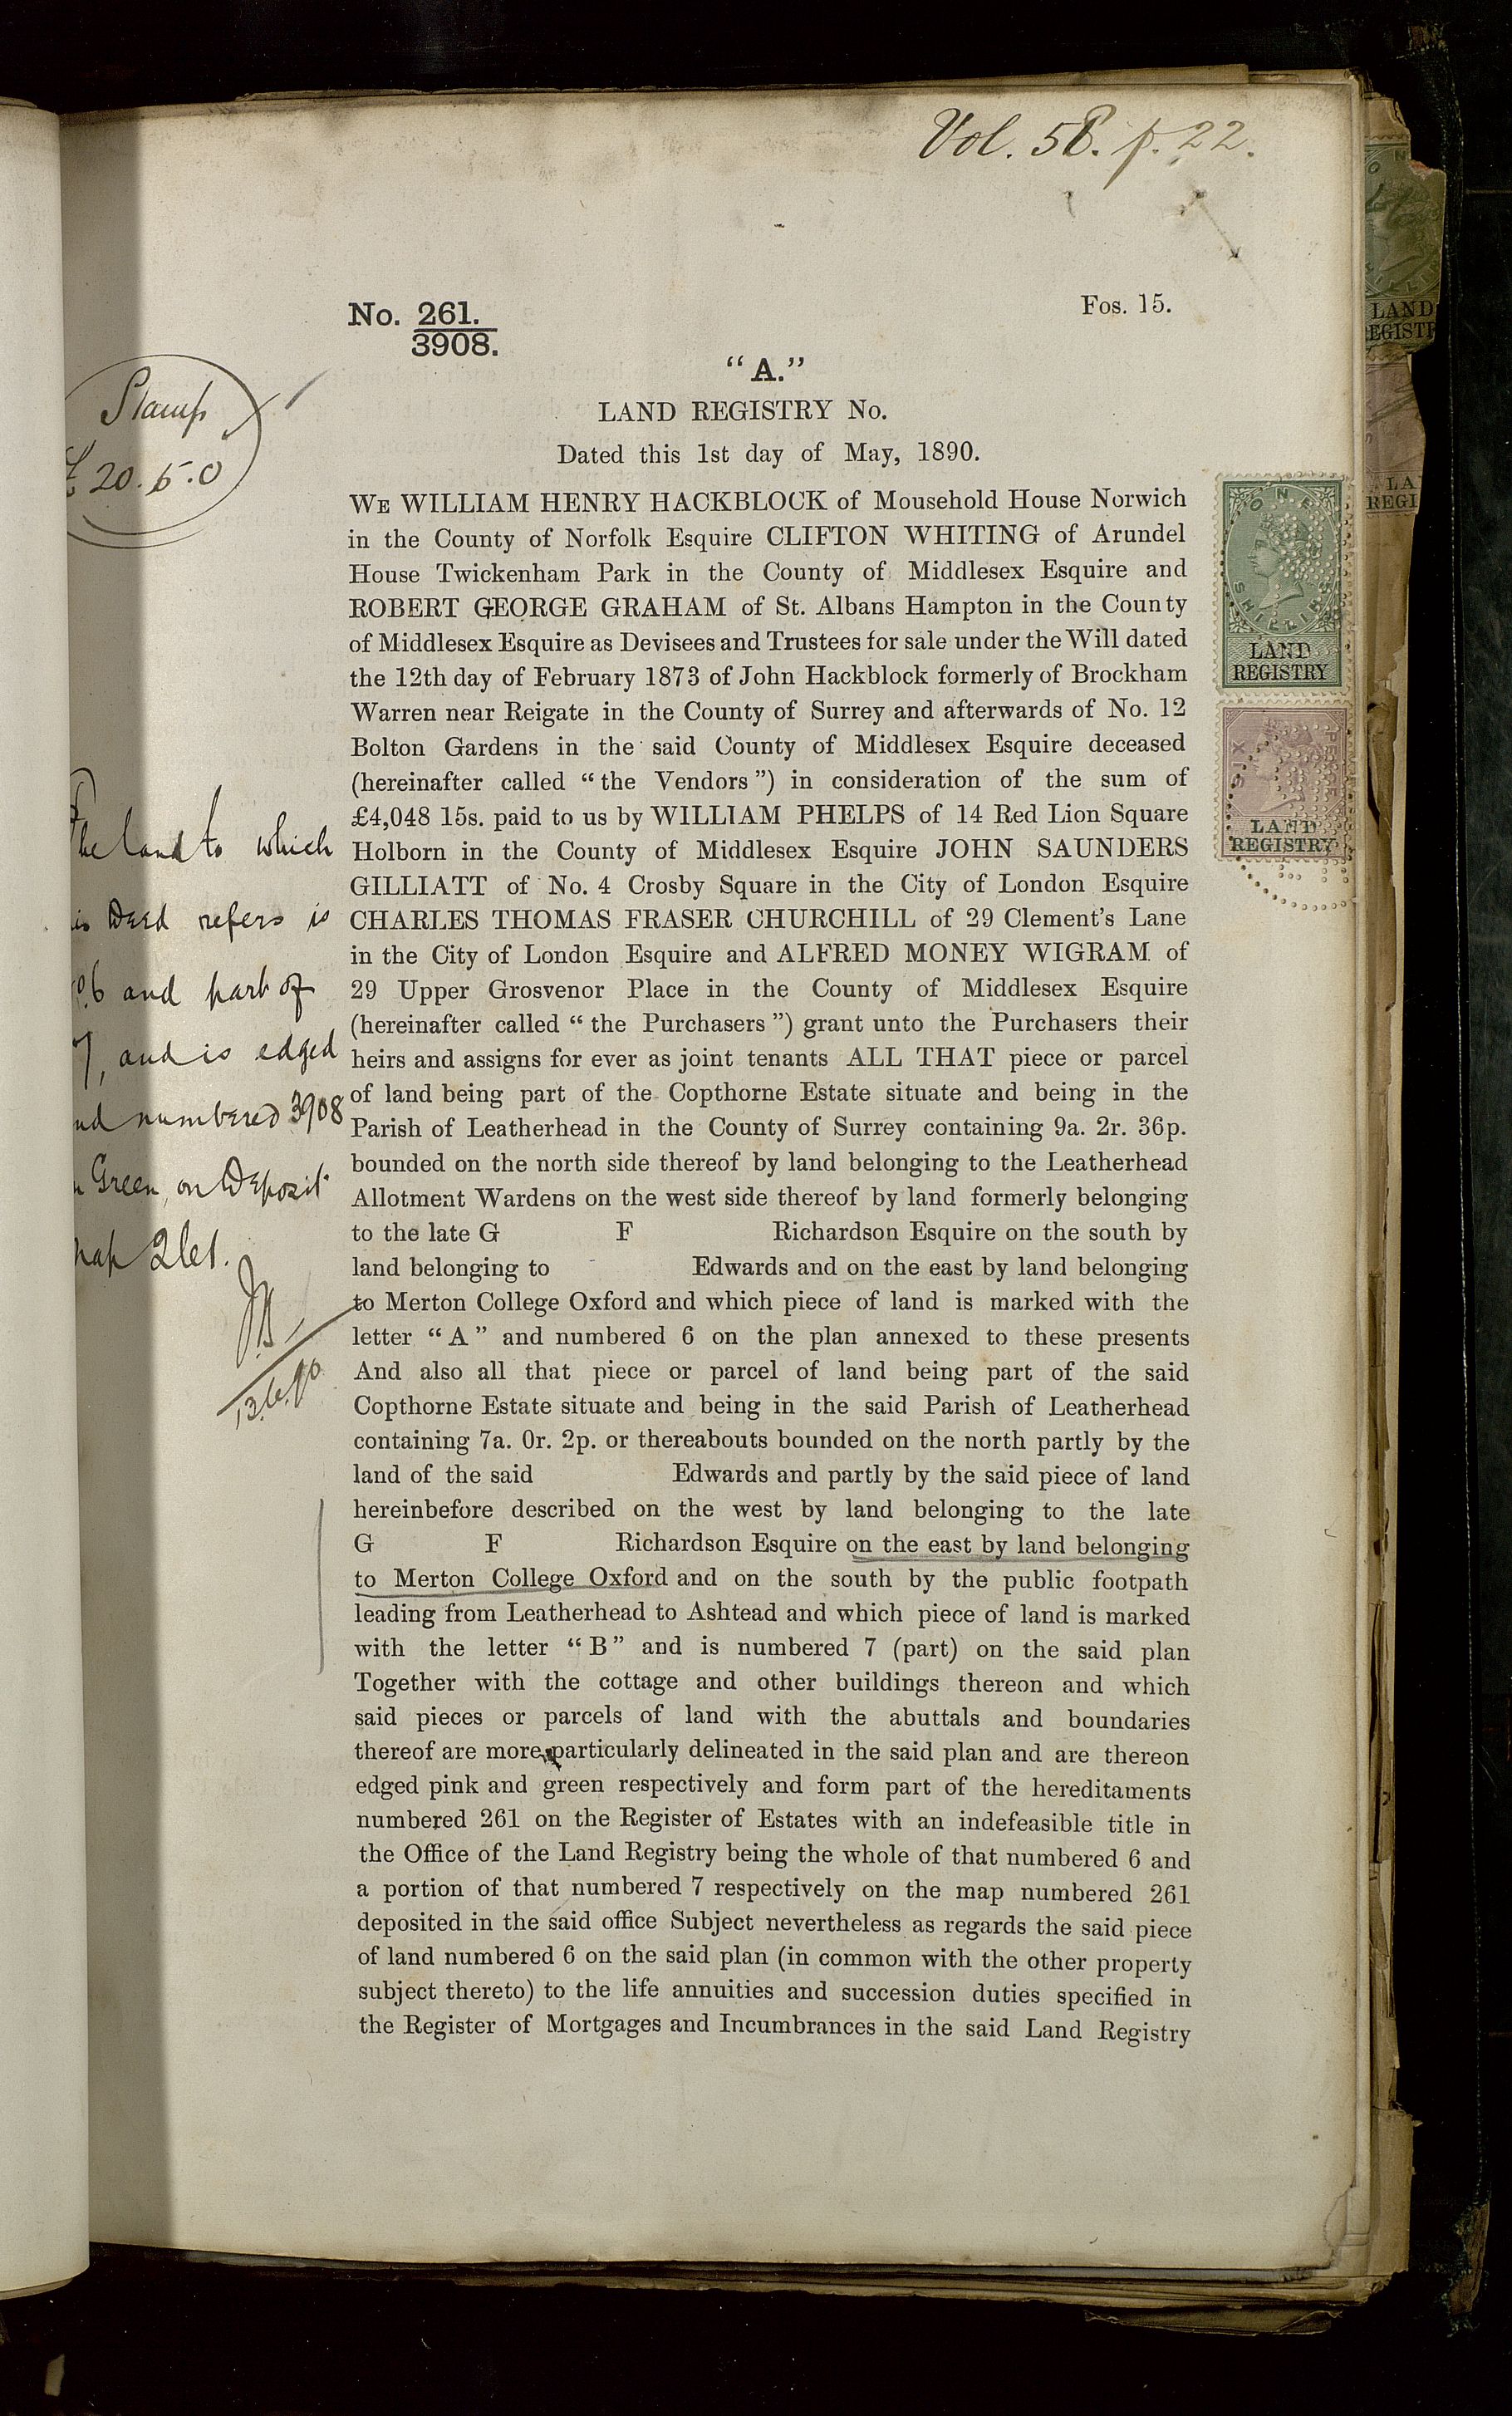 Vol. 5 p. 22.
No. 261.
3908.
Fos. 15.
"A."
LAND REGISTRY No.
Dated this 1st day of May, 1890.
Stamp
£20.5.0
WE WILLIAM HENRY HACKBLOCK of Mousehold House Norwich
in the County of Norfolk Esquire CLIFTON WHITING of Arundel
House Twickenham Park in the County of Middlesex Esquire and
ROBERT GEORGE GRAHAM of St. Albans Hampton in the County
of Middlesex Esquire as Devisees and Trustees for sale under the Will dated
the 12th day of February 1873 of John Hackblock formerly of Brockham
Warren near Reigate in the County of Surrey and afterwards of No. 12
Bolton Gardens in the said County of Middlesex Esquire deceased
(hereinafter called "the Vendors") in consideration of the sum of
£4,048 15s. paid to us by WILLIAM PHELPS of 14 Red Lion Square
Holborn in the County of Middlesex Esquire JOHN SAUNDERS
GILLIATT of No. 4 Crosby Square in the City of London Esquire
CHARLES THOMAS FRASER CHURCHILL of 29 Clement's Lane
in the City of London Esquire and ALFRED MONEY WIGRAM of
29 Upper Grosvenor Place in the County of Middlesex Esquire
(hereinafter called "the Purchasers") grant unto the Purchasers their
heirs and assigns for ever as joint tenants ALL THAT piece or parcel
of land being part of the Copthorne Estate situate and being in the
Parish of Leatherhead in the County of Surrey containing 9a. 2r. 36p.
bounded on the north side thereof by land belonging to the Leatherhead
Allotment Wardens on the west side thereof by land formerly belonging
to the late G F Richardson Esquire on the south by
land belonging to Edwards and on the east by land belonging
to Merton College Oxford and which piece of land is marked with the
letter "A" and numbered 6 on the plan annexed to these presents
And also all that piece or parcel of land being part of the said
Copthorne Estate situate and being in the said Parish of Leatherhead
containing 7a. 0r. 2p. or thereabouts bounded on the north partly by the
land of the said Edwards and partly by the said piece of land
hereinbefore described on the west by land belonging to the late
G F Richardson Esquire on the east by land belonging
to Merton College Oxford and on the south by the public footpath
leading from Leatherhead to Ashtead and which piece of land is marked
with the letter "B" and is numbered 7 (part) on the said plan
Together with the cottage and other buildings thereon and which
said pieces or parcels of land with the abuttals and boundaries
thereof are more particularly delineated in the said plan and are thereon
edged pink and green respectively and form part of the hereditaments
numbered 261 on the Register of Estates with an indefeasible title in
the Office of the Land Registry being the whole of that numbered 6 and
a portion of that numbered 7 respectively on the map numbered 261
deposited in the said office Subject nevertheless as regards the said piece
of land numbered 6 on the said plan (in common with the other property
subject thereto) to the life annuities and succession duties specified in
the Register of Mortgages and Incumbrances in the said Land Registry
The land to which
Deed refers is
6 and part of
7, and is edged
numbered 3908
Green, on Deposit
Map 261.
13.6.90
ONE
SHILLING
LAND
REGISTRY
SIX
PENCE
LAND
REGISTRY
LAND
REGISTR
LA
REGI